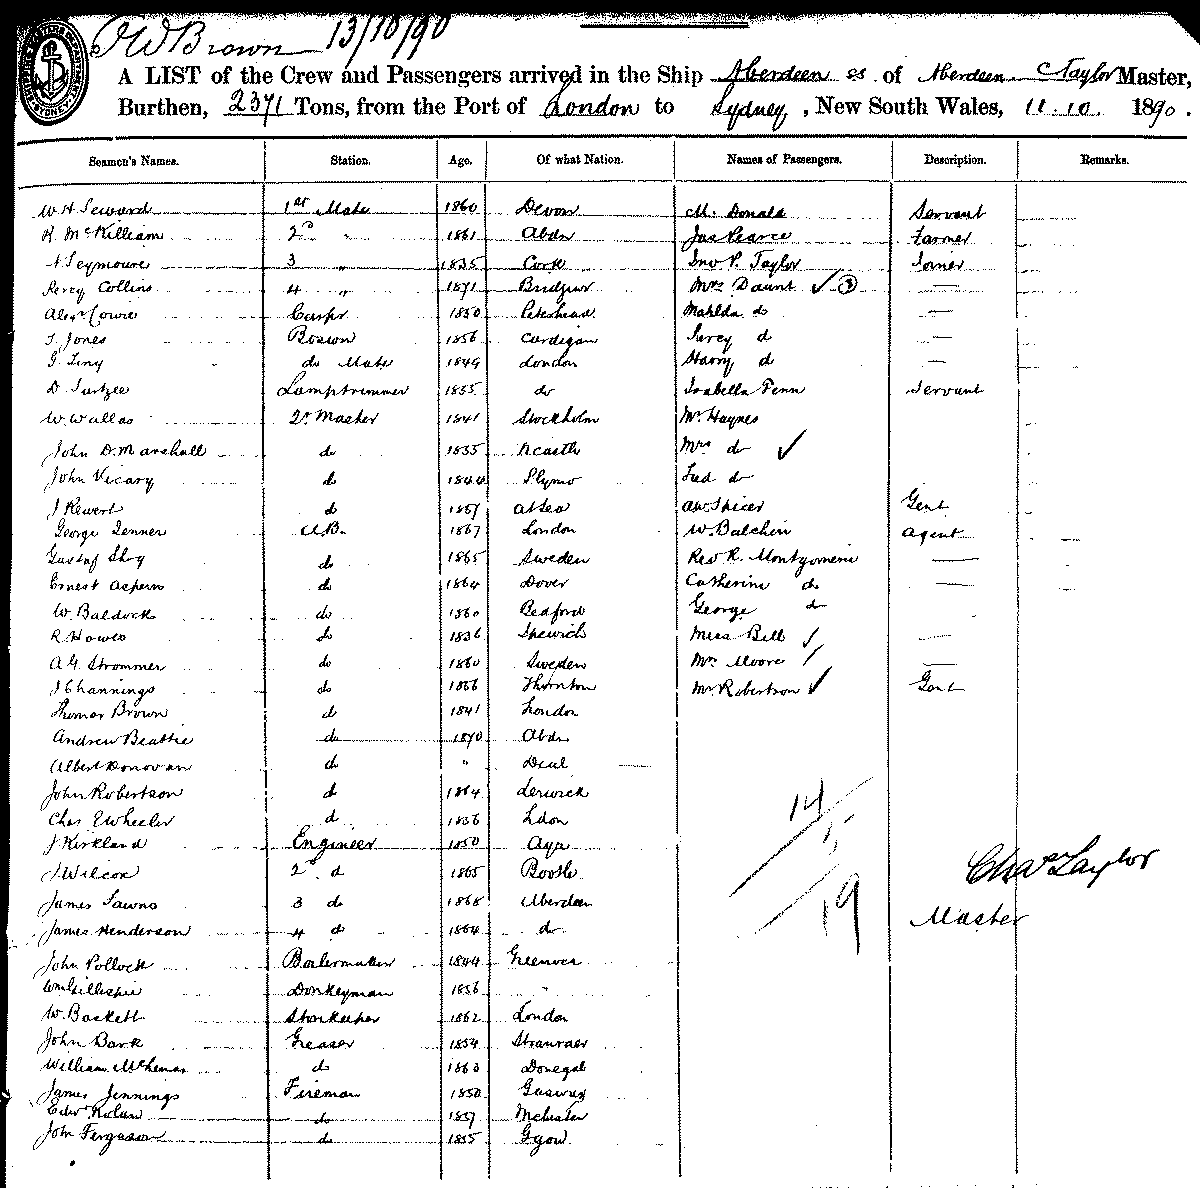 AW Brown 13/10/90
A LIST of the Crew and Passengers arrived in the Ship Aberdeen ss of Aberdeen C Taylor Master,
Burthen, 2371 Tons, from the Port of London to Sydney, New South Wales, 11.10. 1890.
Seamen's Names. Station. Age. Of what Nation. Names of Passengers. Description. Remarks.
W H Seward 1st Mate 1860 Devon M. Donald Servant
R. McKilliam 2d " 1861 Abdn Jas Pearce Farmer
A Seymoure 3 " 1835 Cork Jno P. Taylor Joiner
Percy Collins 4 " 1871 Mrs Daunt ✓ 3 —
Alexr Cowie Carpr 1850 Peterhead Matilda do —
T. Jones Bosun 1856 Cardigan Percy d —
G. Tiny do Mate 1849 London Harry d —
D. Lamptrimmer 1855 do Isabella Penn Servant
W. Wallas Qr Master 1841 Stockholm Mr Haynes
John D. Marshall do 1835 Ncastle Mrs do ✓
John Vicary do 1844 Plymo Fred do
J Rewert do 1857 at Sea AW Spicer Gent
George Jenner A.B. 1867 London W. Balchin Agent
Gustaf do 1865 Sweden Rev R. Montgomerie —
Ernest Aspern do 1864 Dover Catherine do —
W. Baldock do 1860 Bedford George do
R Howes do 1836 Ipswich Miss Bell ✓ —
A. G. Strommer do 1860 Sweden Mrs Moore / —
J Channings do 1866 Thornton Mr Robertson ✓ Gent
Thomas Brown do 1841 London
Andrew Beattie do 1870 Abdn
Albert Donovan do " Deal
John Robertson do 1864 Lerwick
Chas E Wheeler do 1836 Ldon
J Kirkland Engineer 1850 Ayr
J Wilcox 2d d 1865 Bootle
James 3 do 1868 Aberdeen
James Henderson 4 d 1864 do
John Pollock Boilermaker 1844 Greenock
Wm Gillespie Donkeyman 1856 "
W. Backett Storekeeper 1862 London
John Bark Greaser 1854 Stranraer
William do 1860 Donegal
James Jennings Fireman 1850
Edwd Nolan do 1857 Mchester
John Ferguson do 1855 Ggow
14
5
19
Chas Taylor
Master